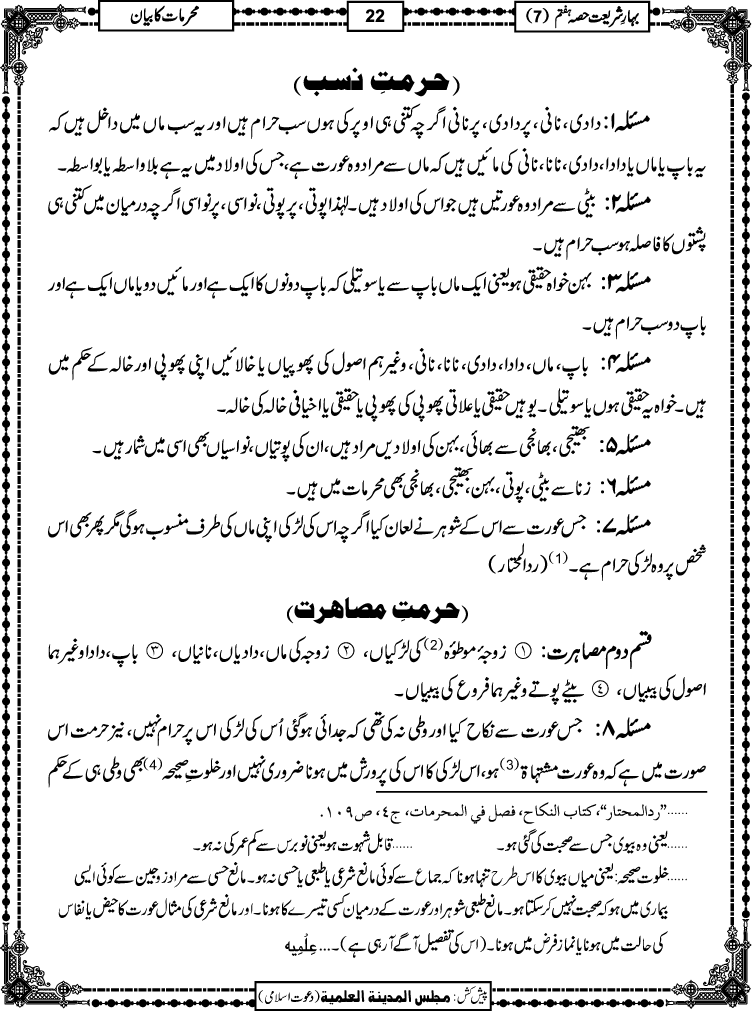 بہارِ شریعت حصہ ہفتم (7)
22
محرمات کا بیان
(حرمتِ نسب)
مسئلہ ۱: دادی، نانی، پردادی، پرنانی اگرچہ کتنی ہی اوپر کی ہوں سب حرام ہیں اور یہ سب ماں میں داخل ہیں کہ
یہ باپ یا ماں یا دادا، دادی، نانا، نانی کی مائیں ہیں کہ ماں سے مراد وہ عورت ہے، جس کی اولاد میں یہ ہے بلاواسطہ یا بواسطہ۔
مسئلہ ۲: بیٹی سے مراد وہ عورتیں ہیں جو اس کی اولاد ہیں۔ لہٰذا پوتی، پرپوتی، نواسی، پرنواسی اگرچہ درمیان میں کتنی ہی
پشتوں کا فاصلہ ہو سب حرام ہیں۔
مسئلہ ۳: بہن خواہ حقیقی ہو یعنی ایک ماں باپ سے یا سوتیلی کہ باپ دونوں کا ایک ہے اور مائیں دو یا ماں ایک ہے اور
باپ دو سب حرام ہیں۔
مسئلہ ۴: باپ، ماں، دادا، دادی، نانا، نانی، وغیرہم اصول کی پھوپیاں یا خالائیں اپنی پھوپی اور خالہ کے حکم میں
ہیں۔ خواہ یہ حقیقی ہوں یا سوتیلی۔ یوہیں حقیقی یا علاتی پھوپی کی پھوپی یا حقیقی یا اخیافی خالہ کی خالہ۔
مسئلہ ۵: بھتیجی، بھانجی سے بھائی، بہن کی اولادیں مراد ہیں، ان کی پوتیاں، نواسیاں بھی اسی میں شمار ہیں۔
مسئلہ ۶: زنا سے بیٹی، پوتی، بہن، بھتیجی، بھانجی بھی محرمات میں ہیں۔
مسئلہ ۷: جس عورت سے اس کے شوہر نے لعان کیا اگرچہ اس کی لڑکی اپنی ماں کی طرف منسوب ہوگی مگر پھر بھی اس
شخص پر وہ لڑکی حرام ہے۔(1) (ردالمحتار)
(حرمتِ مصاہرت)
قسم دوم مصاہرت: ① زوجۂ موطؤہ(2) کی لڑکیاں، ② زوجہ کی ماں، دادیاں، نانیاں، ③ باپ، دادا وغیرہما
اصول کی بیبیاں، ④ بیٹے پوتے وغیرہما فروع کی بیبیاں۔
مسئلہ ۸: جس عورت سے نکاح کیا اور وطی نہ کی تھی کہ جدائی ہوگئی اُس کی لڑکی اس پر حرام نہیں، نیز حرمت اس
صورت میں ہے کہ وہ عورت مشتہاۃ(3) ہو، اس لڑکی کا اس کی پرورش میں ہونا ضروری نہیں اور خلوتِ صحیحہ(4) بھی وطی ہی کے حکم
......”ردالمحتار“، کتاب النکاح، فصل في المحرمات، ج٤، ص١٠٩.
......یعنی وہ بیوی جس سے صحبت کی گئی ہو۔ ......قابل شہوت ہو یعنی نو برس سے کم عمر کی نہ ہو۔
......خلوت صحیحہ: یعنی میاں بیوی کا اس طرح تنہا ہونا کہ جماع سے کوئی مانع شرعی یا طبعی یا حسی نہ ہو۔ مانع حسی سے مراد زوجین سے کوئی ایسی
بیماری میں ہو کہ صحبت نہیں کرسکتا ہو۔ مانع طبعی شوہر اور عورت کے درمیان کسی تیسرے کا ہونا۔ اور مانع شرعی کی مثال عورت کا حیض یا نفاس
کی حالت میں ہونا یا نماز فرض میں ہونا۔ (اس کی تفصیل آگے آرہی ہے)۔... عِلْمِیه
پیش کش: مجلس المدینة العلمیة (دعوت اسلامی)